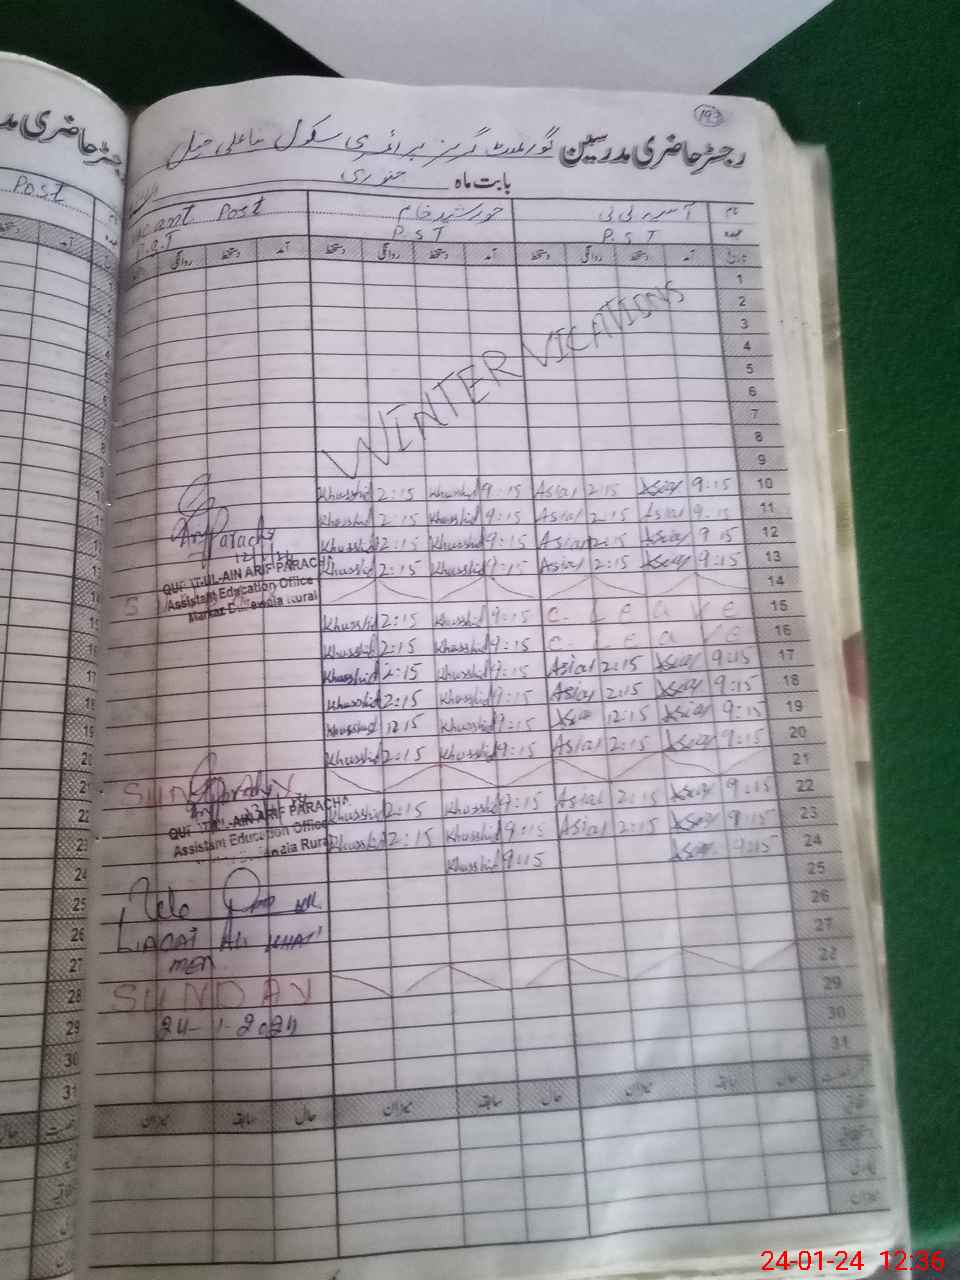 193
رجسٹر حاضری مدرسین گورنمنٹ گرلز پرائمری سکول
بابت ماہ جنوری
نام آسیہ بی بی خورشید خانم Vacant Post
عہدہ P.S.T P.S.T
تاریخ آمد دستخط روانگی دستخط آمد دستخط روانگی دستخط آمد دستخط روانگی
1
2
3
4
5
6
7
8
9
WINTER VICATIONS
Khurshid 2:15 Khurshid 9:15 Asia 2:15 Asia 9:15 10
Khurshid 2:15 Khurshid 9:15 Asia 2:15 Asia 9:15 11
Khurshid 2:15 Khurshid 9:15 Asia 2:15 Asia 9:15 12
Khurshid 2:15 Khurshid 9:15 Asia 2:15 Asia 9:15 13
14
Khurshid 2:15 Khurshid 9:15 C. LEAVE 15
Khurshid 2:15 Khurshid 9:15 C. LEAVE 16
Khurshid 2:15 Khurshid 9:15 Asia 2:15 Asia 9:15 17
Khurshid 2:15 Khurshid 9:15 Asia 2:15 Asia 9:15 18
Khurshid 12:15 Khurshid 9:15 Asia 12:15 Asia 9:15 19
Khurshid 2:15 Khurshid 9:15 Asia 2:15 Asia 9:15 20
SUNDAY 21
Khurshid 2:15 Khurshid 9:15 Asia 2:15 Asia 9:15 22
Khurshid 2:15 Khurshid 9:15 Asia 2:15 Asia 9:15 23
Khurshid 9:15 Asia 9:15 24
25
26
27
SUNDAY 28
29
30
31
Arif Paracha
12/1/24
QURAT-UL-AIN ARIF PARACHA
Assistant Education Office
Rural
QURAT-UL-AIN ARIF PARACHA
Assistant Education Office
Rural
LIAQAT Ali KHAT
MEN
24-1-2024
میزان سابقہ حال میزان سابقہ حال میزان سابقہ حال
رجسٹر حاضری
Post
24-01-24 12:36